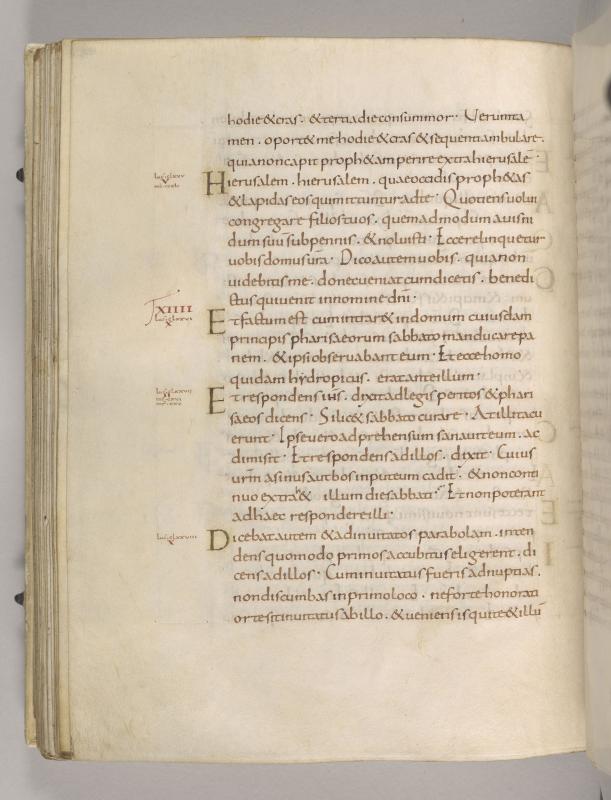 hodie & cras. & tertia die consummor. Verumta
men. oport& me hodie & cras & sequenti ambulare.
quia non capit proph&am perire extra hierusalē.
Hierusalem. hierusalem. quae occidis proph&as
& lapidas eos qui mittuntur ad te. Quotiens volui
congregare filios tuos. quemadmodum avis ni
dum suū sub pennis. & noluisti. Ecce relinquetur
vobis domus vr̄a. Dico autem vobis. quia non
videbitis me. donec veniat cum dicetis. benedi
ctus qui venit in nomine dnī.
XIIII
Et factum est cum intrar& in domum cuiusdam
principis pharisaeorum sabbato manducare pa
nem. & ipsi observabant eum. Et ecce homo
quidam hydropicus. erat ante illum.
Et respondens ihs. dixit ad legis peritos & phari
saeos dicens. Si lic& sabbato curare. At illi tacu
erunt. Ipse vero adprehensum sanavit eum. ac
dimisit. Et respondens ad illos. dixit. Cuius
vrm̄ asinus aut bos in puteum cadit. & non conti
nuo extrah& illum die sabbati. Et non poterant
ad haec respondere illi.
Dicebat autem & ad invitatos parabolam. inten
dens quomodo primos accubitus eligerent. di
cens ad illos. Cum invitatus fueris ad nuptias.
non discumbas in primo loco. ne forte honorati
or te sit invitatus ab illo. & veniens is qui te & illū